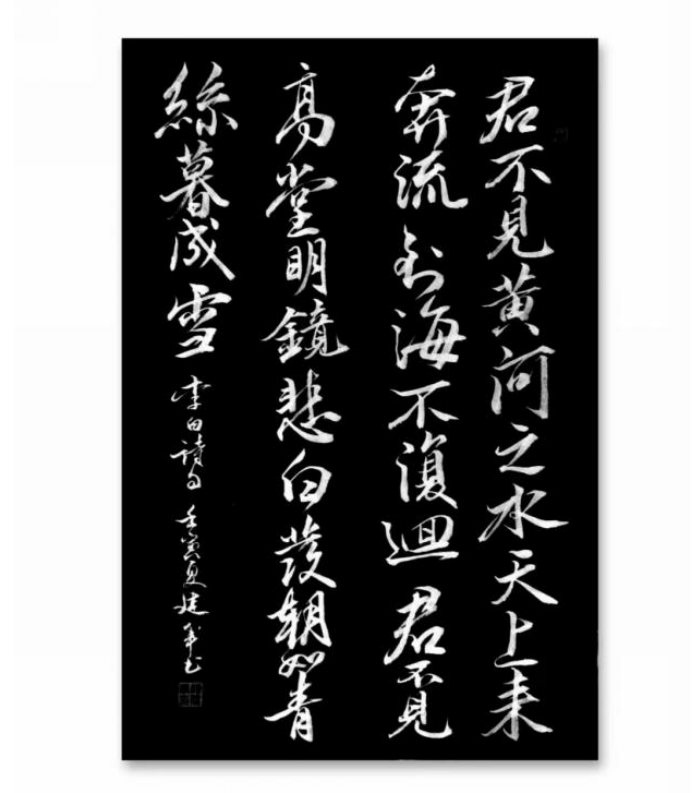 君不見黄河之水天上来
奔流到海不復迴君不見
高堂明鏡悲白發朝如青
絲暮成雪
李白詩句壬寅夏建華書